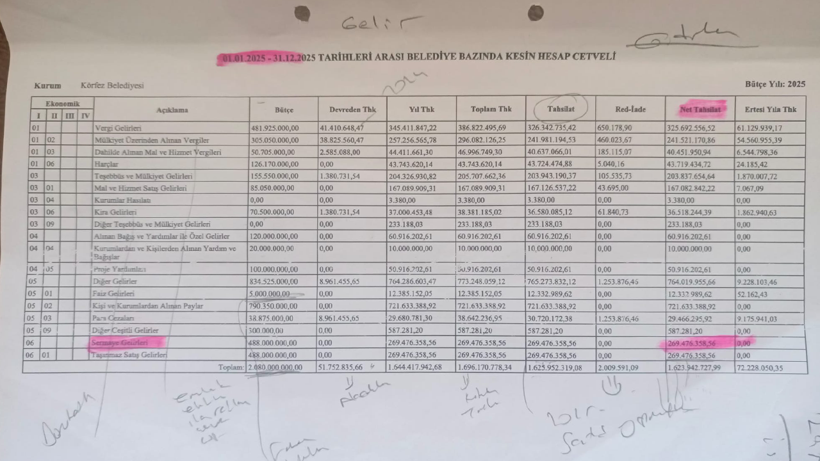 Gelir
Giderler
01.01.2025 - 31.12.2025 TARİHLERİ ARASI BELEDİYE BAZINDA KESİN HESAP CETVELİ
Kurum Körfez Belediyesi Bütçe Yılı: 2025
Ekonomik Açıklama Bütçe Devreden Thk Yıl Thk Toplam Thk Tahsilat Red-İade Net Tahsilat Ertesi Yıla Thk
I II III IV
01 Vergi Gelirleri 481.925.000,00 41.410.648,47 345.411.847,22 386.822.495,69 326.342.735,42 650.178,90 325.692.556,52 61.129.939,17
01 02 Mülkiyet Üzerinden Alınan Vergiler 305.050.000,00 38.825.560,47 257.256.565,78 296.082.126,25 241.981.194,53 460.023,67 241.521.170,86 54.560.955,39
01 03 Dahilde Alınan Mal ve Hizmet Vergileri 50.705.000,00 2.585.088,00 44.411.661,30 46.996.749,30 40.637.066,01 185.115,07 40.451.950,94 6.544.798,36
01 06 Harçlar 126.170.000,00 0,00 43.743.620,14 43.743.620,14 43.724.474,88 5.040,16 43.719.434,72 24.185,42
03 Teşebbüs ve Mülkiyet Gelirleri 155.550.000,00 1.380.731,54 204.326.930,82 205.707.662,36 203.943.190,37 105.535,73 203.837.654,64 1.870.007,72
03 01 Mal ve Hizmet Satış Gelirleri 85.050.000,00 0,00 167.089.909,31 167.089.909,31 167.126.537,22 43.695,00 167.082.842,22 7.067,09
03 04 Kurumlar Hasılatı 0,00 0,00 3.380,00 3.380,00 3.380,00 0,00 3.380,00 0,00
03 06 Kira Gelirleri 70.500.000,00 1.380.731,54 37.000.453,48 38.381.185,02 36.580.085,12 61.840,73 36.518.244,39 1.862.940,63
03 09 Diğer Teşebbüs ve Mülkiyet Gelirleri 0,00 0,00 233.188,03 233.188,03 233.188,03 0,00 233.188,03 0,00
04 Alınan Bağış ve Yardımlar ile Özel Gelirler 120.000.000,00 0,00 60.916.202,61 60.916.202,61 60.916.202,61 0,00 60.916.202,61 0,00
04 04 Kurumlardan ve Kişilerden Alınan Yardım ve Bağışlar 20.000.000,00 0,00 10.000.000,00 10.000.000,00 10.000.000,00 0,00 10.000.000,00 0,00
04 05 Proje Yardımları 100.000.000,00 0,00 50.916.202,61 50.916.202,61 50.916.202,61 0,00 50.916.202,61 0,00
05 Diğer Gelirler 834.525.000,00 8.961.455,65 764.286.603,47 773.248.059,12 765.273.832,12 1.253.876,46 764.019.955,66 9.228.103,46
05 01 Faiz Gelirleri 5.000.000,00 0,00 12.385.152,05 12.385.152,05 12.332.989,62 0,00 12.332.989,62 52.162,43
05 02 Kişi ve Kurumlardan Alınan Paylar 790.350.000,00 0,00 721.633.388,92 721.633.388,92 721.633.388,92 0,00 721.633.388,92 0,00
05 03 Para Cezaları 38.875.000,00 8.961.455,65 29.680.781,30 38.642.236,95 30.720.172,38 1.253.876,46 29.466.295,92 9.175.941,03
05 09 Diğer Çeşitli Gelirler 300.000,00 0,00 587.281,20 587.281,20 587.281,20 0,00 587.281,20 0,00
06 Sermaye Gelirleri 488.000.000,00 0,00 269.476.358,56 269.476.358,56 269.476.358,56 0,00 269.476.358,56 0,00
06 01 Taşınmaz Satış Gelirleri 488.000.000,00 0,00 269.476.358,56 269.476.358,56 269.476.358,56 0,00 269.476.358,56 0,00
Toplam: 2.080.000.000,00 51.752.835,66 1.644.417.942,68 1.696.170.778,34 1.625.952.319,08 2.009.591,09 1.623.942.727,99 72.228.050,35